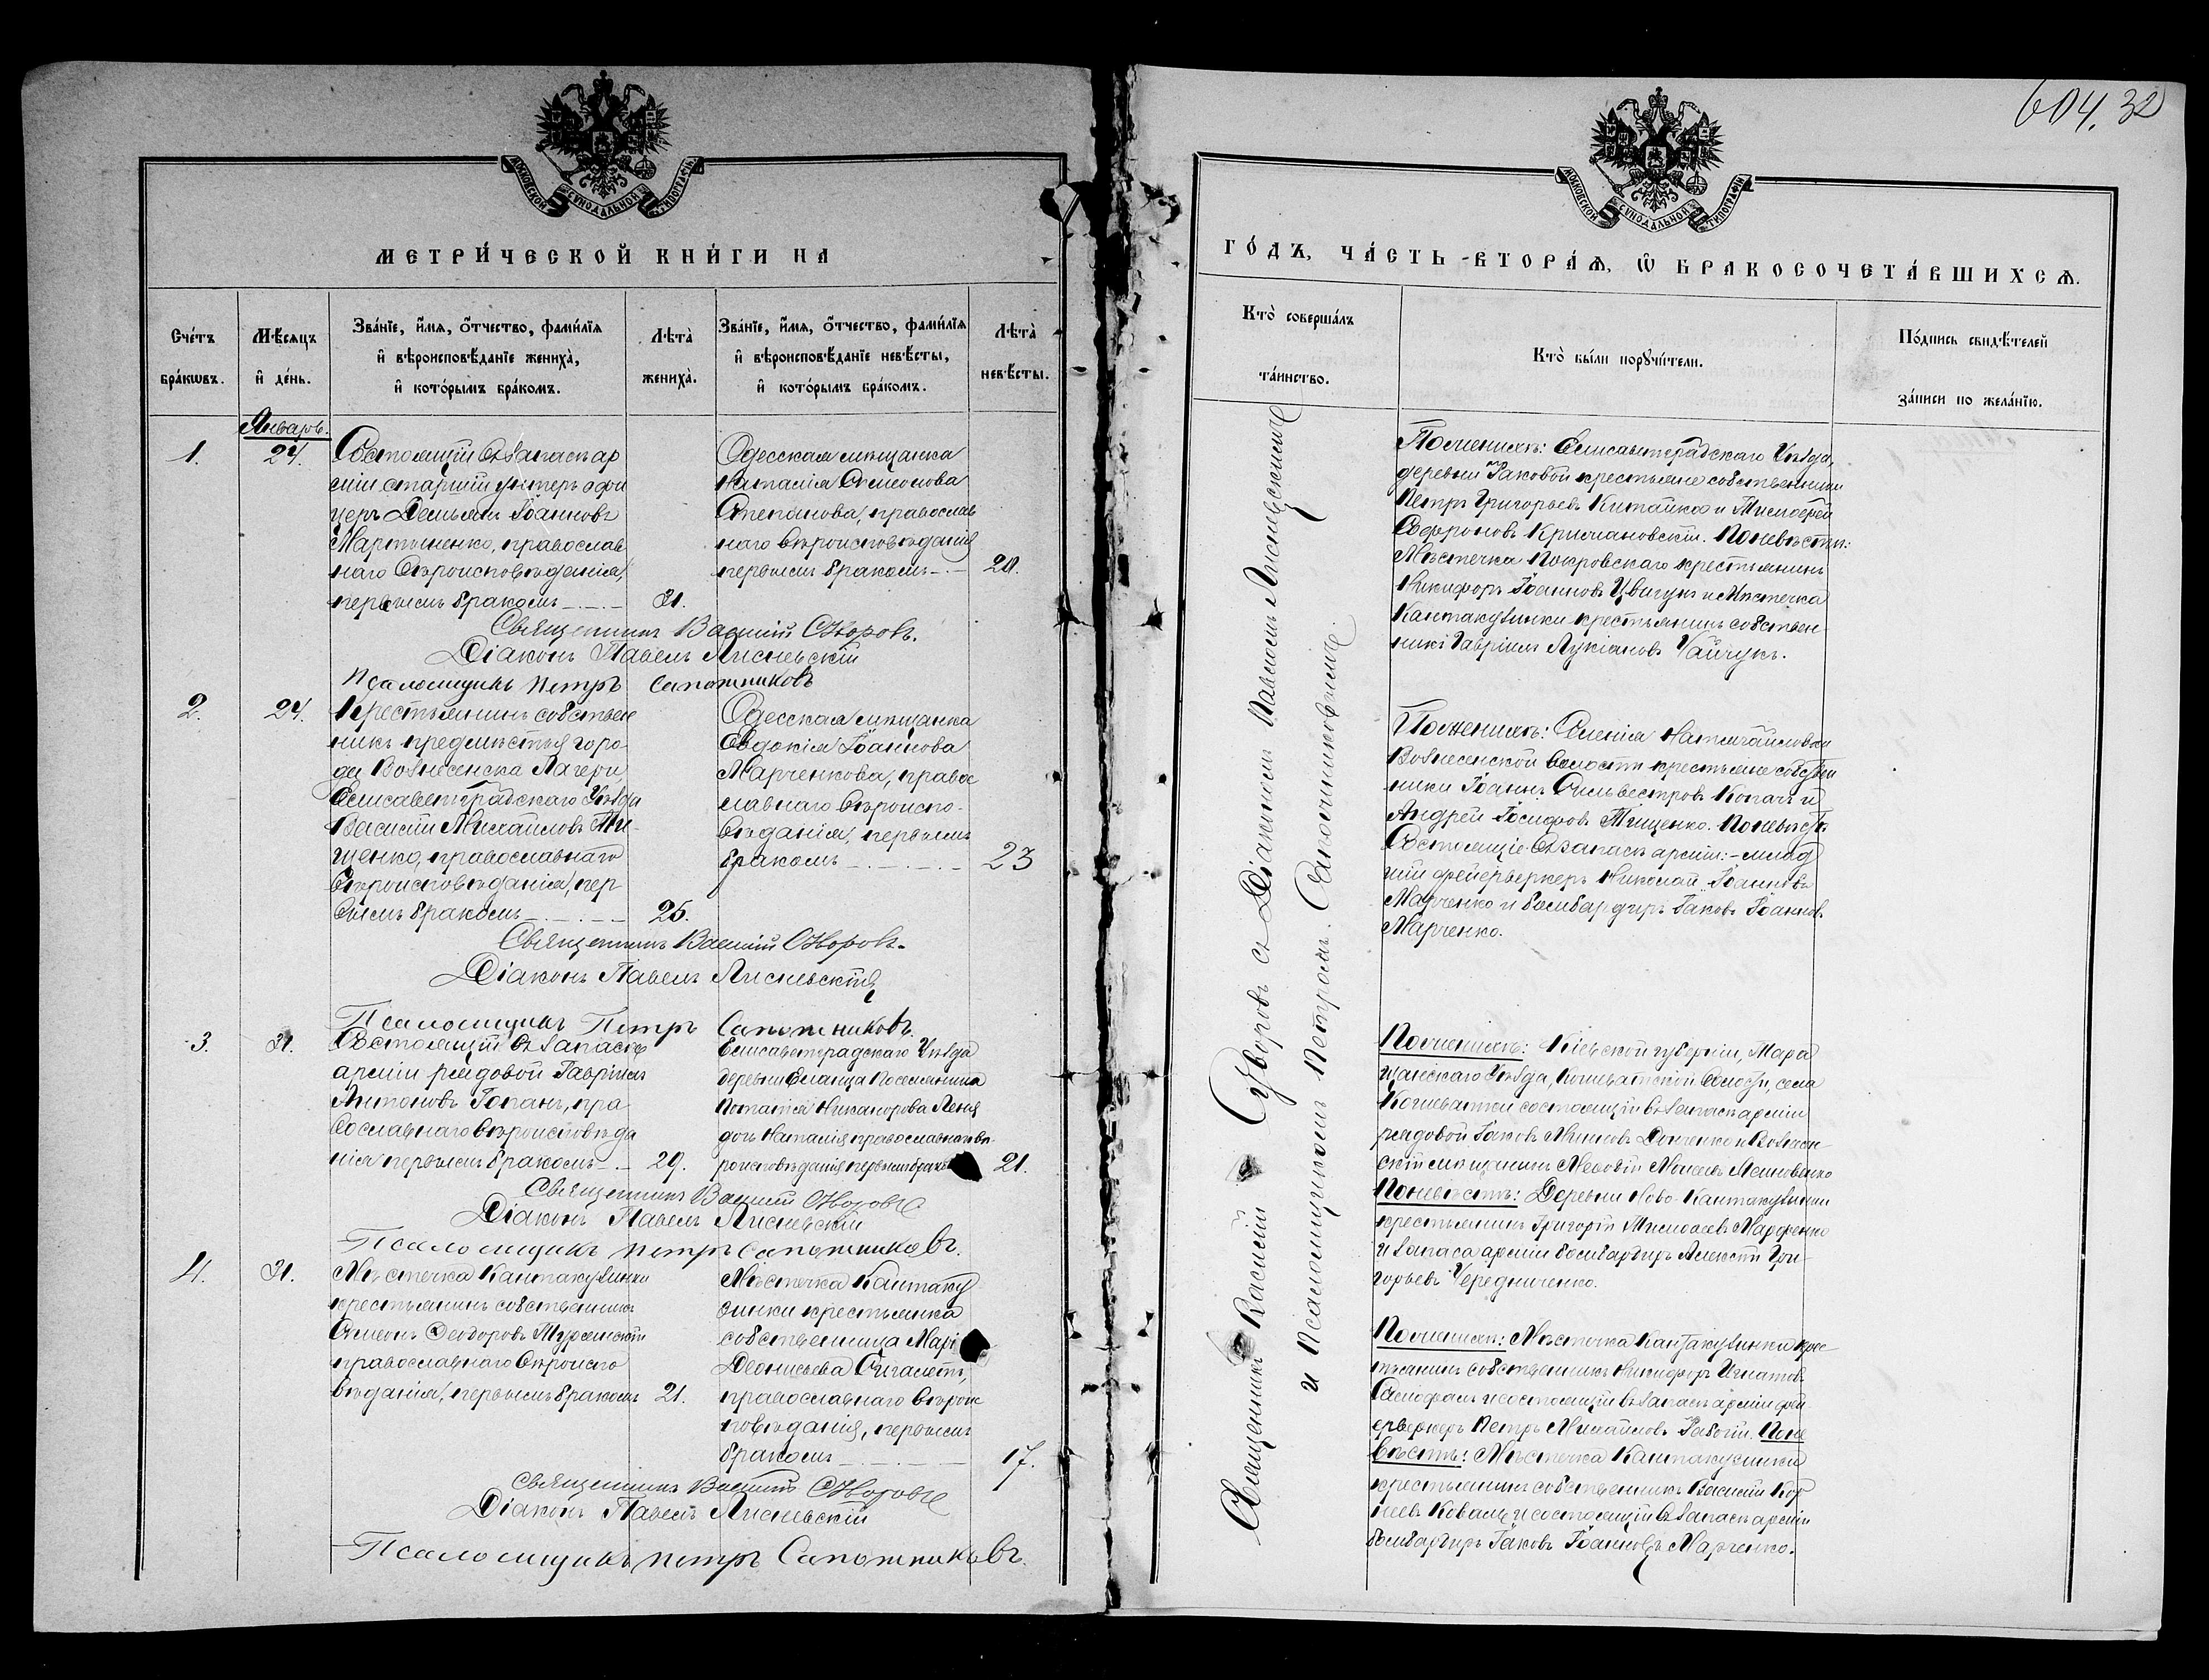 604. 32
МОСКОВСКОЙ СУНОДАЛЬНОЙ ТИПОГРАФІИ
МЕТРИ́ЧЕСКОЙ КНИ́ГИ НА
Сче́тъ бра́кωвъ.
Мѣ́сяцъ и҆ де́нь.
Зва́нїе, и҆́мя, ѻ҆́тчество, фами́лїя
и҆ вѣроисповѣ́данїе жениха̀,
и҆ кото́рымъ бра́комъ.
Лѣта̀ жениха̀.
Зва́нїе, и҆́мя, ѻ҆́тчество, фами́лїя
и҆ вѣроисповѣ́данїе невѣ́сты,
и҆ кото́рымъ бра́комъ.
Лѣта̀ невѣ́сты.
Январь.
1.
24.
Состоящій въ запасѣ ар
міи старшій унтеръ офи
церъ Демьянъ Іоанновъ
Мартыненко, православ
наго вѣроисповѣданія,
первымъ бракомъ
31.
Одесская мѣщанка
Наталія Симеонова
Степанова, православ
наго вѣроисповѣданія
первымъ бракомъ
20.
Священникъ Василій Суворовъ.
Діаконъ Павелъ Лисневскій
Псаломщикъ Петръ Сапожниковъ
2.
24.
Крестьянинъ собствен
никъ предмѣстья горо-
да Вознесенска Лагери,
Елисаветградскаго Уѣзда
Василій Михаиловъ Ти-
щенко, православнаго
вѣроисповѣданія, пер
вымъ бракомъ
25.
Одесская мѣщанка
Евдокія Іоаннова
Марченкова, право
славнаго вѣроиспо-
вѣданія, первымъ
бракомъ
23
Священникъ Василій Суворовъ.
Діаконъ Павелъ Лисневскій
Псаломщикъ Петръ Сапожниковъ.
3.
31.
Состоящій въ запасѣ
арміи рядовой Гавріилъ
Антоновъ Гопанъ, пра
вославнаго вѣроисповѣда
нія первымъ бракомъ
29.
Елисаветградскаго Уѣзда
деревни Еланца Поселянина
Никанорова
дочь Наталія православнаго вѣ-
роисповѣданія первымъ
21.
Священникъ Василій Суворовъ
Діаконъ Павелъ Лисневскій
Псаломщикъ Петръ Сапожниковъ.
4.
31.
Мѣстечка Кантакузинки
крестьянинъ собственникъ
Симеонъ Ѳеодоровъ
православнаго вѣроиспо
вѣданія, первымъ бракомъ
21.
Мѣстечка Кантаку
зинки крестьянка
собственница
Діонисьева
православнаго вѣроис
повѣданія, первымъ
бракомъ
17.
Священникъ Василій Суворовъ
Діаконъ Павелъ Лисневскій
Псаломщикъ Петръ Сапожниковъ.
МОСКОВСКОЙ СУНОДАЛЬНОЙ ТИПОГРАФІИ
ГО́ДЪ, ЧА́СТЬ ВТОРА́Я, Ѡ҆ БРАКОСОЧЕТА́ВШИХСЯ.
Кто̀ соверша́лъ
та́инство.
Кто̀ бы́ли порꙋчи́тели.
По́дпись свидѣ́телей
за́писи по жела́нїю.
Священникъ Василій Суворовъ съ Діакономъ Павломъ Лисневскимъ
и Псаломщикомъ Петромъ Сапожниковымъ.
По женихѣ: Елисаветградскаго Уѣзда,
деревни Іаковой крестьяне собственники
Петръ Григорьевъ Китайка и Тимоѳей
Софроновъ Кричановскій. По невѣстѣ:
Мѣстечка Покровскаго крестьянинъ
Никифоръ Іоанновъ и Мѣстечка
Кантакузинки крестьянинъ собствен-
никъ Гавріилъ Лукіановъ Чайчукъ.
По женихѣ: Имѣнія
Вознесенской волости крестьяне собствен
ники Іоаннъ Сильвестровъ Копачъ и
Андрей Іосифовъ Тищенко. По невѣстѣ
Состоящіе въ запасѣ арміи: млад
шій фейерверкеръ Николай Іоанновъ
Марченко и бомбардиръ Іаковъ Іоаннов.
Марченко.
По женихѣ: Кіевской губерніи, Тара
щанскаго Уѣзда, Кошеватской волости, села
Кошеватки состоящій въ запасѣ арміи
рядовой Іаковъ и Вознесен-
скій мѣщанинъ
По невѣстѣ: Деревни Ново-Кантакузинки
крестьянинъ Григорій
и запаса арміи бомбардиръ Алексѣй Гри-
горьевъ Чередниченко.
По женихѣ: Мѣстечка Кантакузинки крес-
тьянинъ собственникъ Никифоръ Игнатовъ
и состоящій въ запасѣ арміи фей
ерверкеръ Петръ Михайловъ По не
вѣстѣ: Мѣстечка Кантакузинки
крестьянинъ собственникъ Василій Кор
неевъ Коваль и состоящій въ запасѣ арміи
бомбардиръ Іаковъ Іоанновъ Марченко.